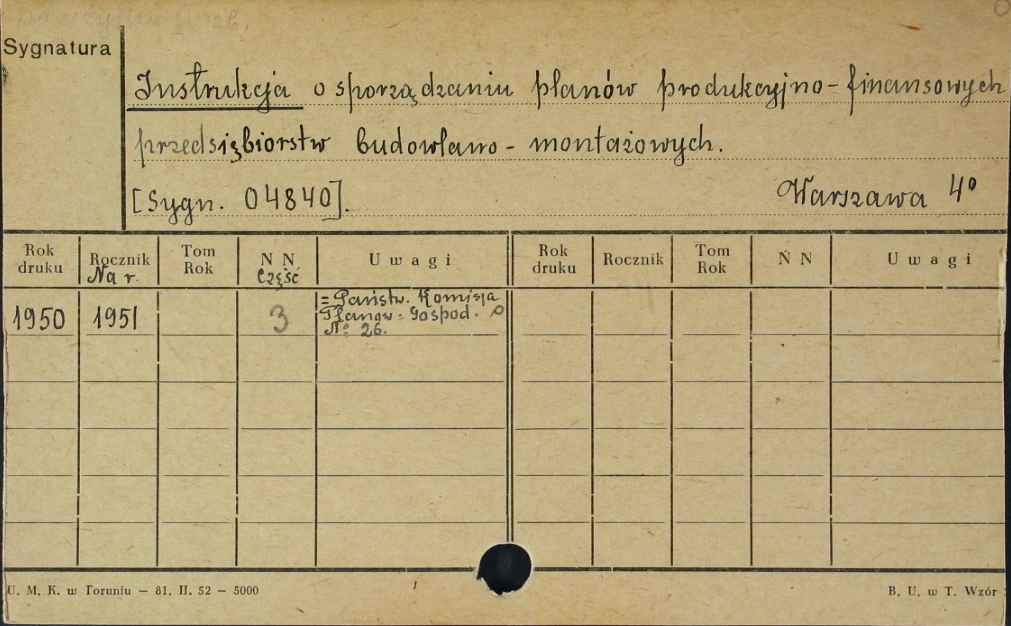 Sygnatura
Instrukcja o sporządzaniu planów produkcyjno-finansowych
przedsiębiorstw budowlano-montażowych.
[Sygn. 04840]. Warszawa 4º
Rok druku Rocznik Na r. Tom Rok N N Część Uwagi Rok druku Rocznik Tom Rok N N Uwagi
1950 1951 3 = Państw. Komisja
Planow. Gospod.
Nº 26.
U. M. K. w Toruniu — 81. II. 52 — 5000 B. U. w T. Wzór